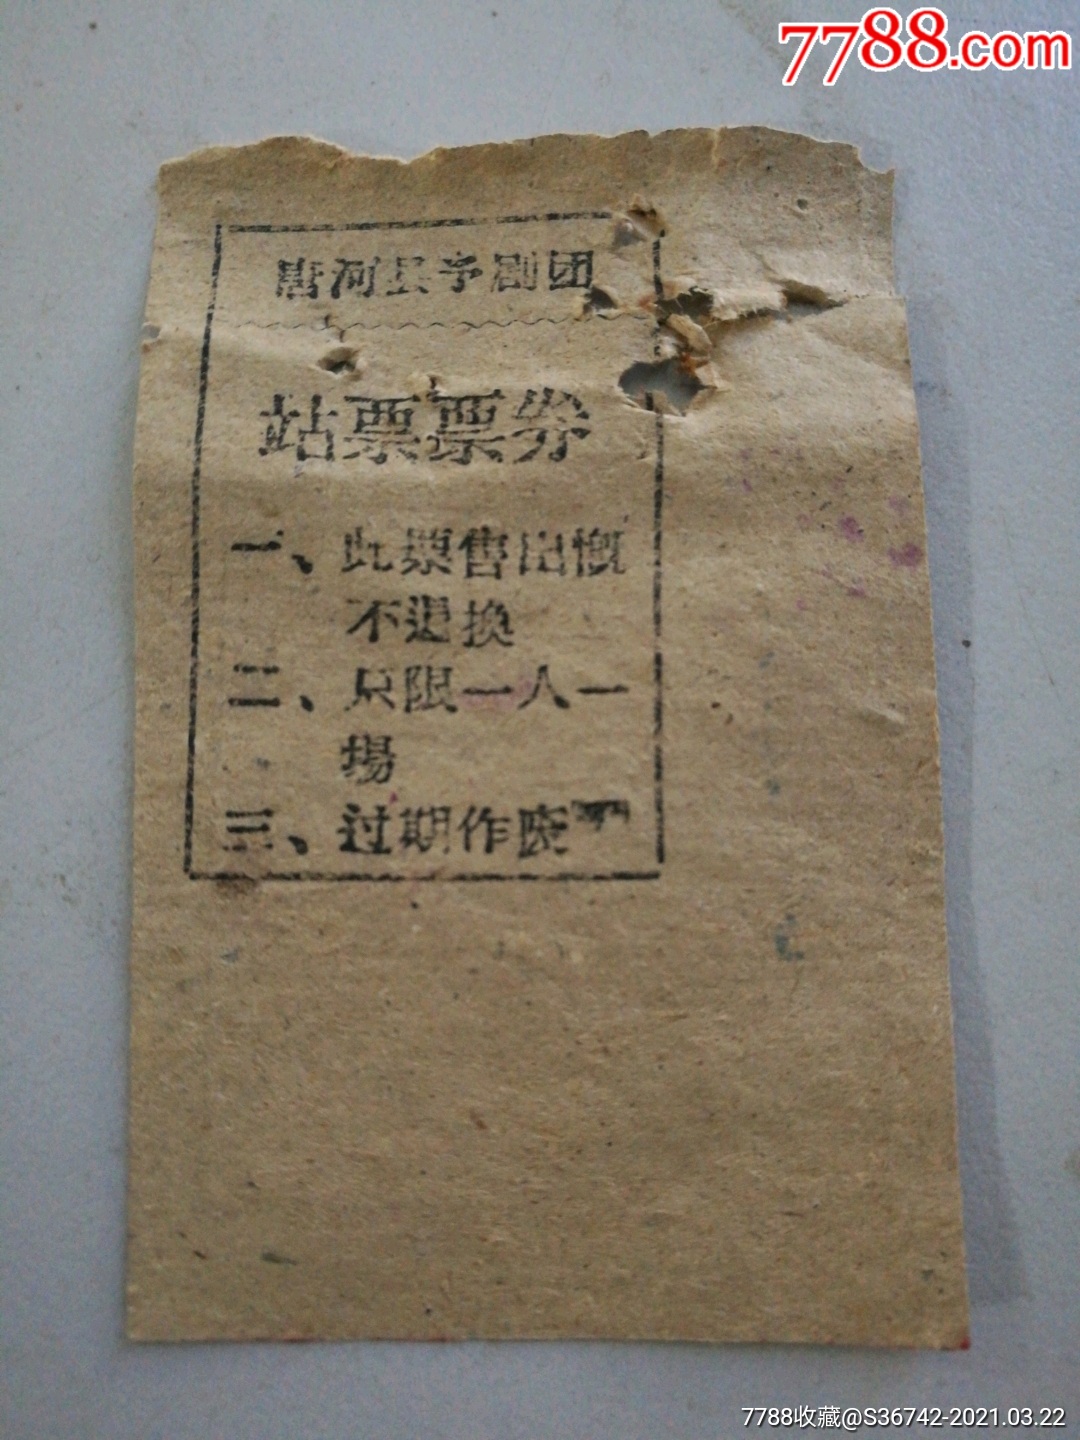 7788.com
唐河县予剧团
站票票券
一、此票售出慨
不退换
二、只限一人一
場
三、过期作废
7788收藏@S36742-2021.03.22